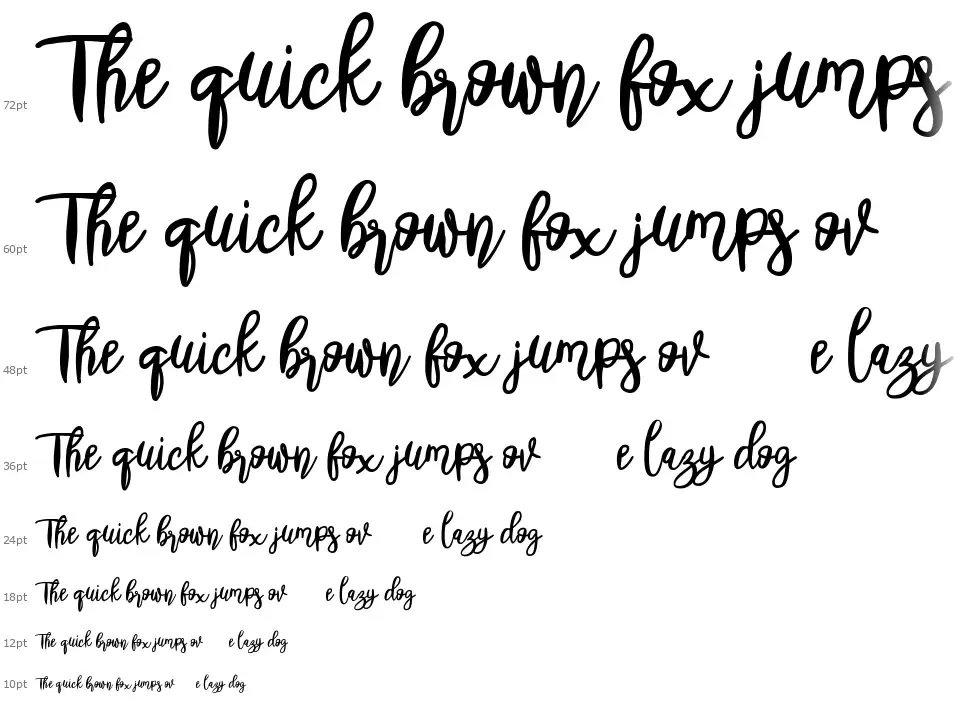 72pt The quick brown fox jumps
60pt The quick brown fox jumps ov
48pt The quick brown fox jumps ov e lazy
36pt The quick brown fox jumps ov e lazy dog
24pt The quick brown fox jumps ov e lazy dog
18pt The quick brown fox jumps ov e lazy dog
12pt The quick brown fox jumps ov e lazy dog
10pt The quick brown fox jumps ov e lazy dog